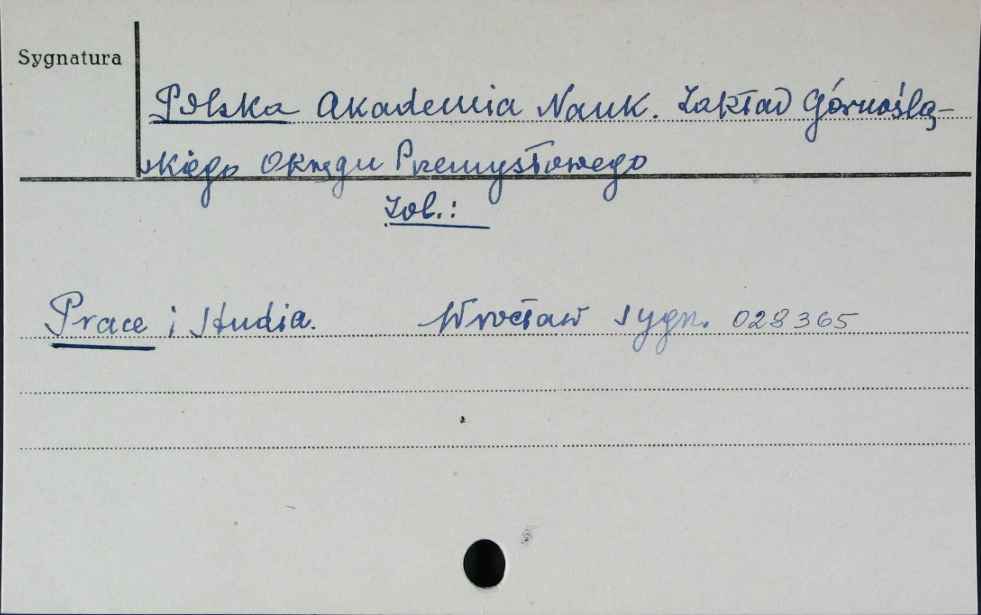 Sygnatura
Polska Akademia Nauk. Zakład Górnoślą-
skiego Okręgu Przemysłowego
Zob.:
Prace i Studia. Wrocław sygn. 028365